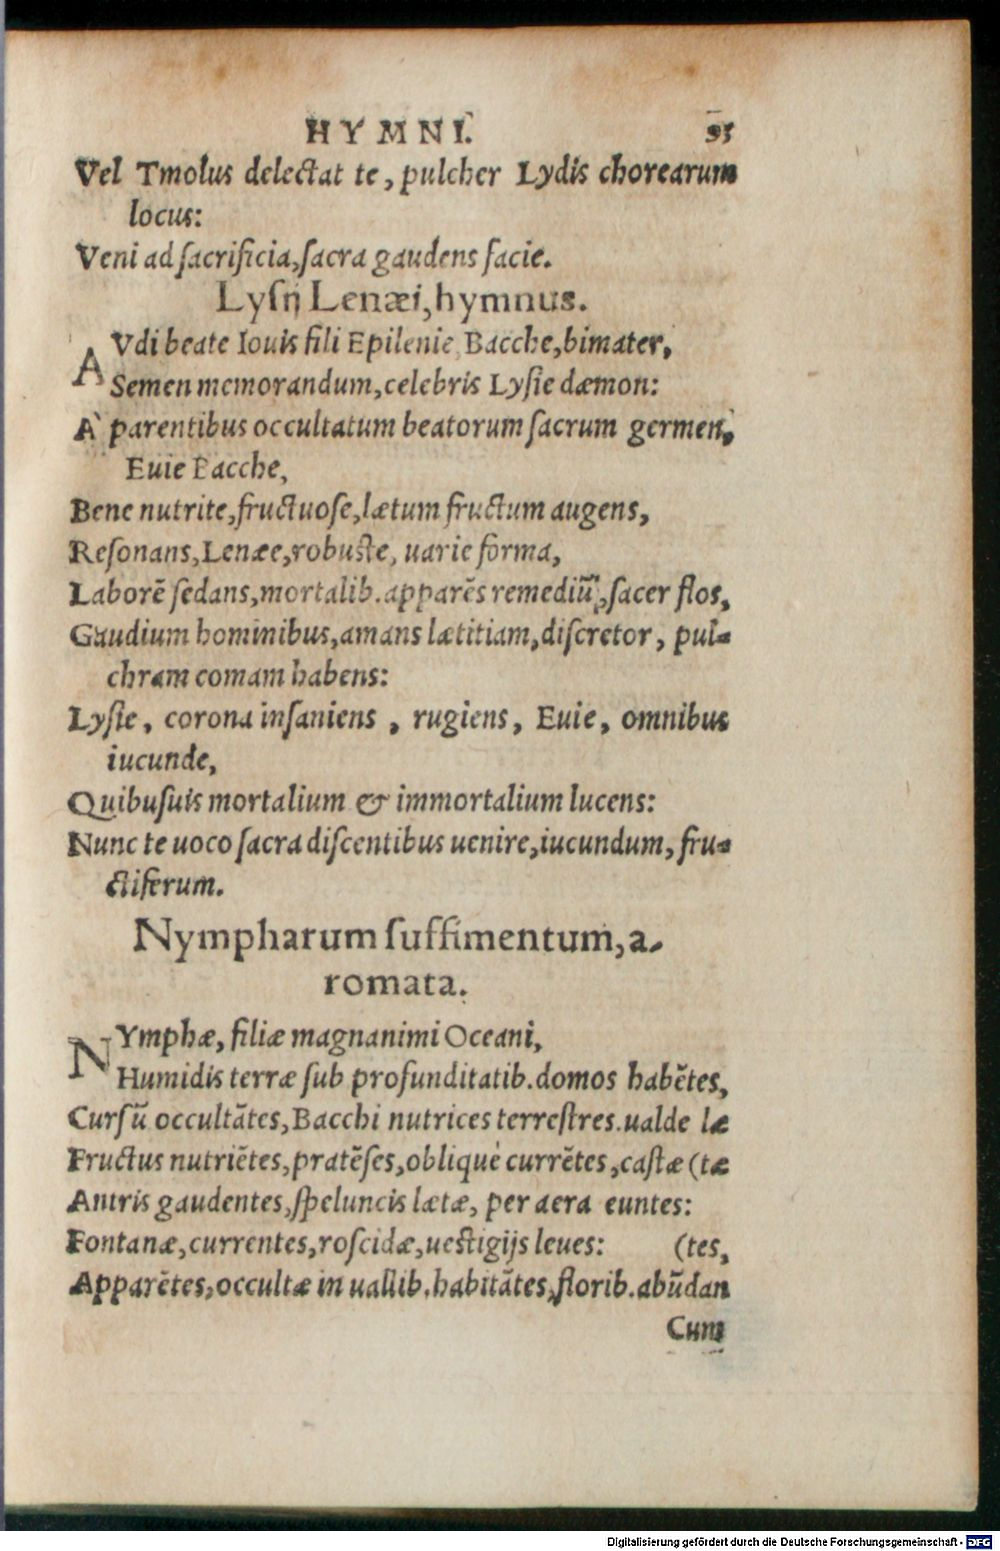 HYMNI. 95
Vel Tmolus delectat te, pulcher Lydis chorearum
locus:
Veni ad sacrificia, sacra gaudens facie.
Lysij Lenæi, hymnus.
AVdi beate Iouis fili Epilenie Bacche, bimater,
Semen memorandum, celebris Lysie dæmon:
A` parentibus occultatum beatorum sacrum germen,
Euie Bacche,
Bene nutrite, fructuose, lætum fructum augens,
Resonans, Lenæe, robuste, uarie forma,
Laborē sedans, mortalib. apparēs remediū, sacer flos,
Gaudium hominibus, amans lætitiam, discretor, pul-
chram comam habens:
Lysie, corona insaniens, rugiens, Euie, omnibus
iucunde,
Quibusuis mortalium & immortalium lucens:
Nunc te uoco sacra discentibus uenire, iucundum, fru-
ctiferum.
Nympharum suffimentum, a-
romata.
NYmphæ, filiæ magnanimi Oceani,
Humidis terræ sub profunditatib. domos habētes,
Cursū occultātes, Bacchi nutrices terrestres. ualde læ
Fructus nutriētes, pratēses, obliquè currētes, castæ (tæ
Antris gaudentes, speluncis lætæ, per aera euntes:
Fontanæ, currentes, roscidæ, uestigijs leues: (tes,
Apparētes, occultæ in uallib. habitātes, florib. abūdan
Cum
Digitalisierung gefördert durch die Deutsche Forschungsgemeinschaft - DFG